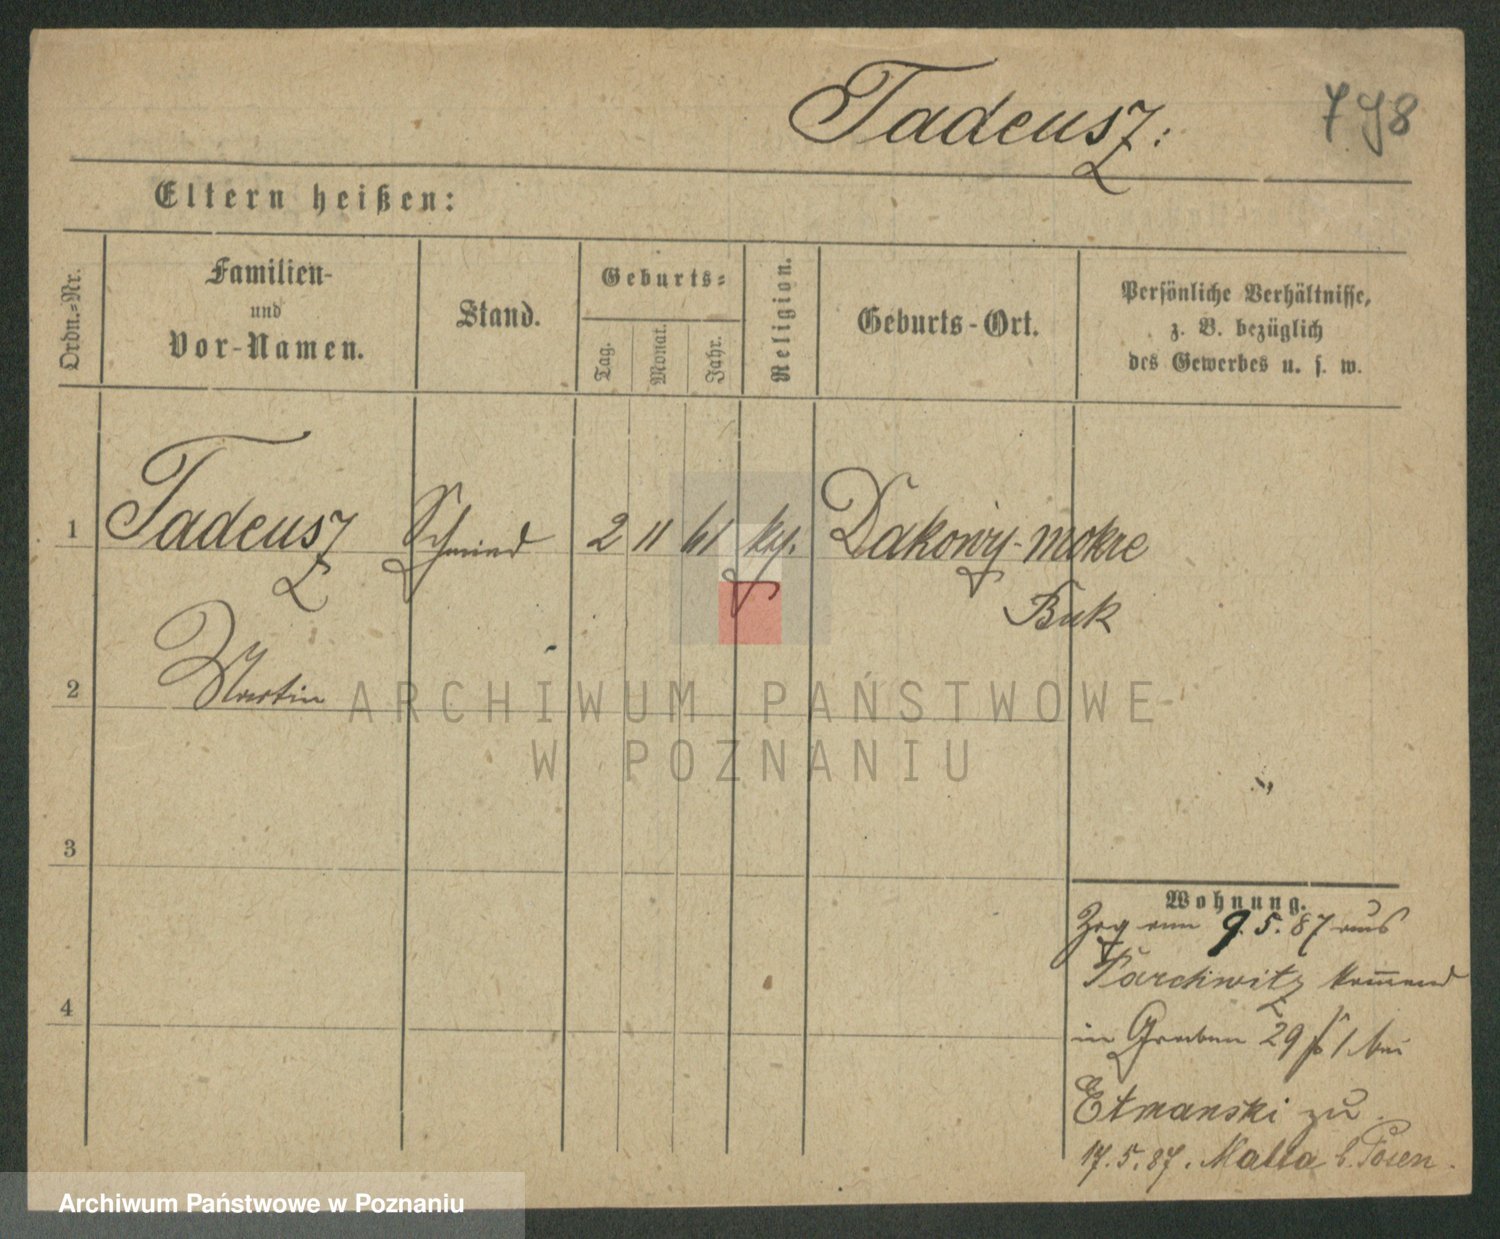 Tadeusz:
798
Eltern heißen:
Ordn.=Nr.
Familien-
und
Vor-Namen.
Stand.
Geburts=
Tag.
Monat.
Jahr.
Religion.
Geburts-Ort.
Persönliche Verhältnisse,
z. B. bezüglich
des Gewerbes u. s. w.
1 Tadeusz Schmied 2 11 61 Dakowy-mokre
Buk
2 Martin
ARCHIWUM PAŃSTWOWE
W POZNANIU
3
4
Wohnung.
Zog am 9.5.87 aus
Parchwitz kommend
in Graben 29 bei
Etmanski zu
17.5.87. Malta b. Posen.
Archiwum Państwowe w Poznaniu